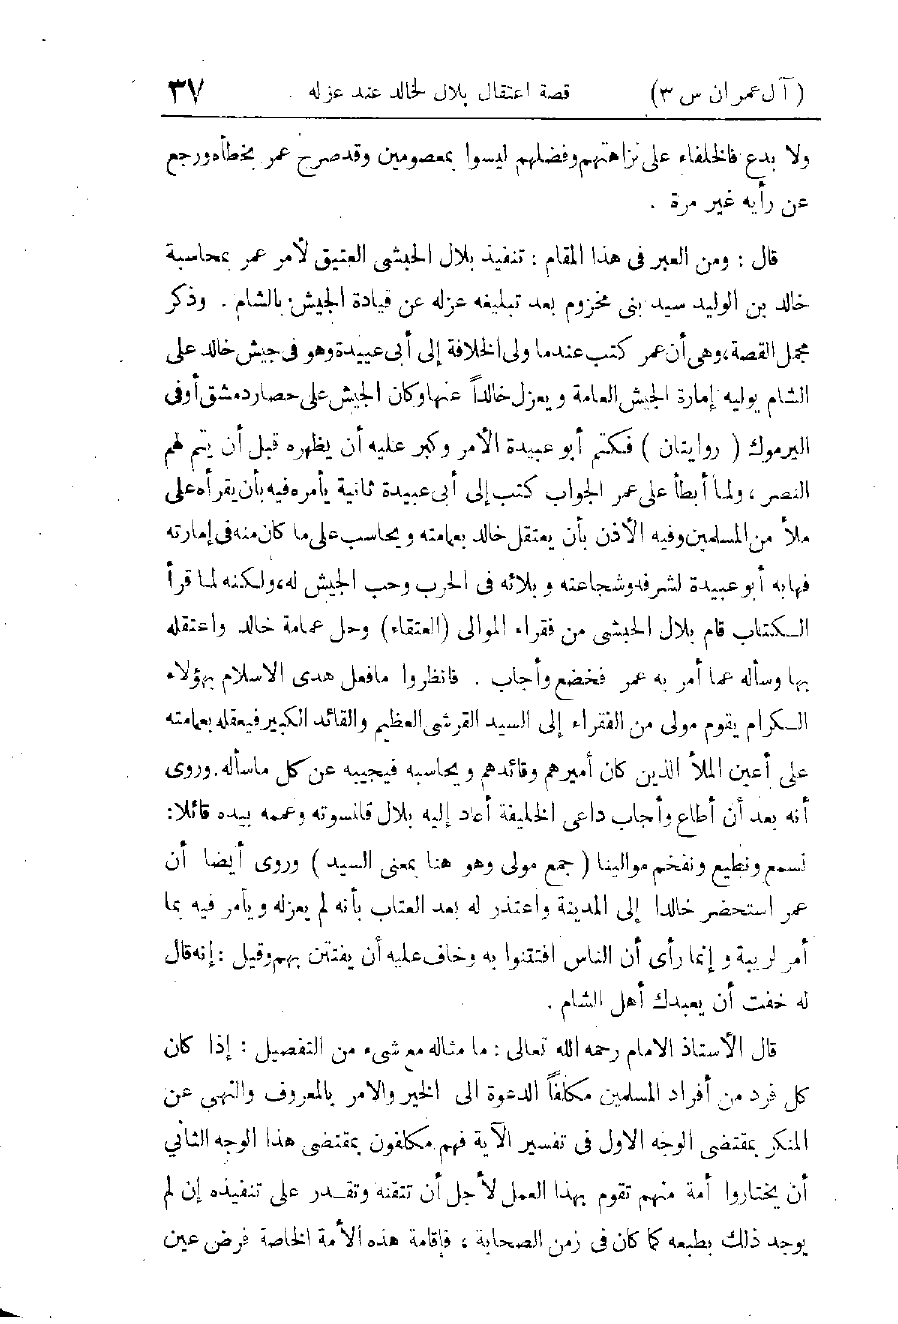 (آل عمران س ٣) قصة اعتقال بلال لخالد عند عزله ٣٧
ولا بدع فالخلفاء على نزاهتهم وفضلهم ليسوا بمعصومين وقد صرح عمر بخطأه ورجع
عن رأيه غير مرة .
قال : ومن العبر فى هذا المقام : تنفيذ بلال الحبشى العتيق لأمر عمر بمحاسبة
خالد بن الوليد سيد بنى مخزوم بعد تبليغه عزله عن قيادة الجيش بالشام . وذكر
مجمل القصة، وهى أن عمر كتب عندما ولى الخلافة إلى أبى عبيدة وهو فى جيش خالد على
الشام يوليه إمارة الجيش العامة ويعزل خالداً عنها وكان الجيش على حصار دمشق أو فى
اليرموك ( روايتان ) فكتم أبو عبيدة الأمر وكبر عليه أن يظهره قبل أن يتم لهم
النصر ، ولما أبطأ على عمر الجواب كتب إلى أبى عبيدة ثانية يأمره فيه بأن يقرأه على
ملأ من المسلمين وفيه الأذن بأن يعتقل خالد بعمامته ويحاسب على ما كان منه فى إمارته
فهابه أبو عبيدة لشرفه وشجاعته وبلائه فى الحرب وحب الجيش له، ولكنه لما قرأ
الكتاب قام بلال الحبشى من فقراء الموالى (العتقاء) وحل عمامة خالد واعتقله
بها وسأله عما أمر به عمر فخضع وأجاب . فانظروا مافعل هدى الاسلام بهؤلاء
الكرام يقوم مولى من الفقراء إلى السيد القرشى العظيم والقائد الكبير فيعقله بعمامته
على أعين الملأ الذين كان أميرهم وقائدهم ويحاسبه فيجيبه عن كل ماسأله. وروى
أنه بعد أن أطاع وأجاب داعى الخليفة أعاد إليه بلال قلنسوته وعممه بيده قائلا:
نسمع ونطيع ونفخم موالينا ( جمع مولى وهو هنا بمعنى السيد ) وروى أيضا أن
عمر استحضر خالدا إلى المدينة واعتذر له بعد العتاب بأنه لم يعزله ويأمر فيه بما
أمر لريبة وإنما رأى أن الناس افتتنوا به وخاف عليه أن يفتتن بهم وقيل : إنه قال
له خفت أن يعبدك أهل الشام .
قال الأستاذ الامام رحمه الله تعالى : ما مثاله مع شىء من التفصيل : إذا كان
كل فرد من أفراد المسلمين مكلفاً الدعوة الى الخير والامر بالمعروف والنهى عن
المنكر بمقتضى الوجه الاول فى تفسير الآية فهم مكلفون بمقتضى هذا الوجه الثاني
أن يختاروا أمة منهم تقوم بهذا العمل لأجل أن تتقنه وتقدر على تنفيذه إن لم
يوجد ذلك بطبعه كما كان فى زمن الصحابة ، فإقامة هذه الأمة الخاصة فرض عين